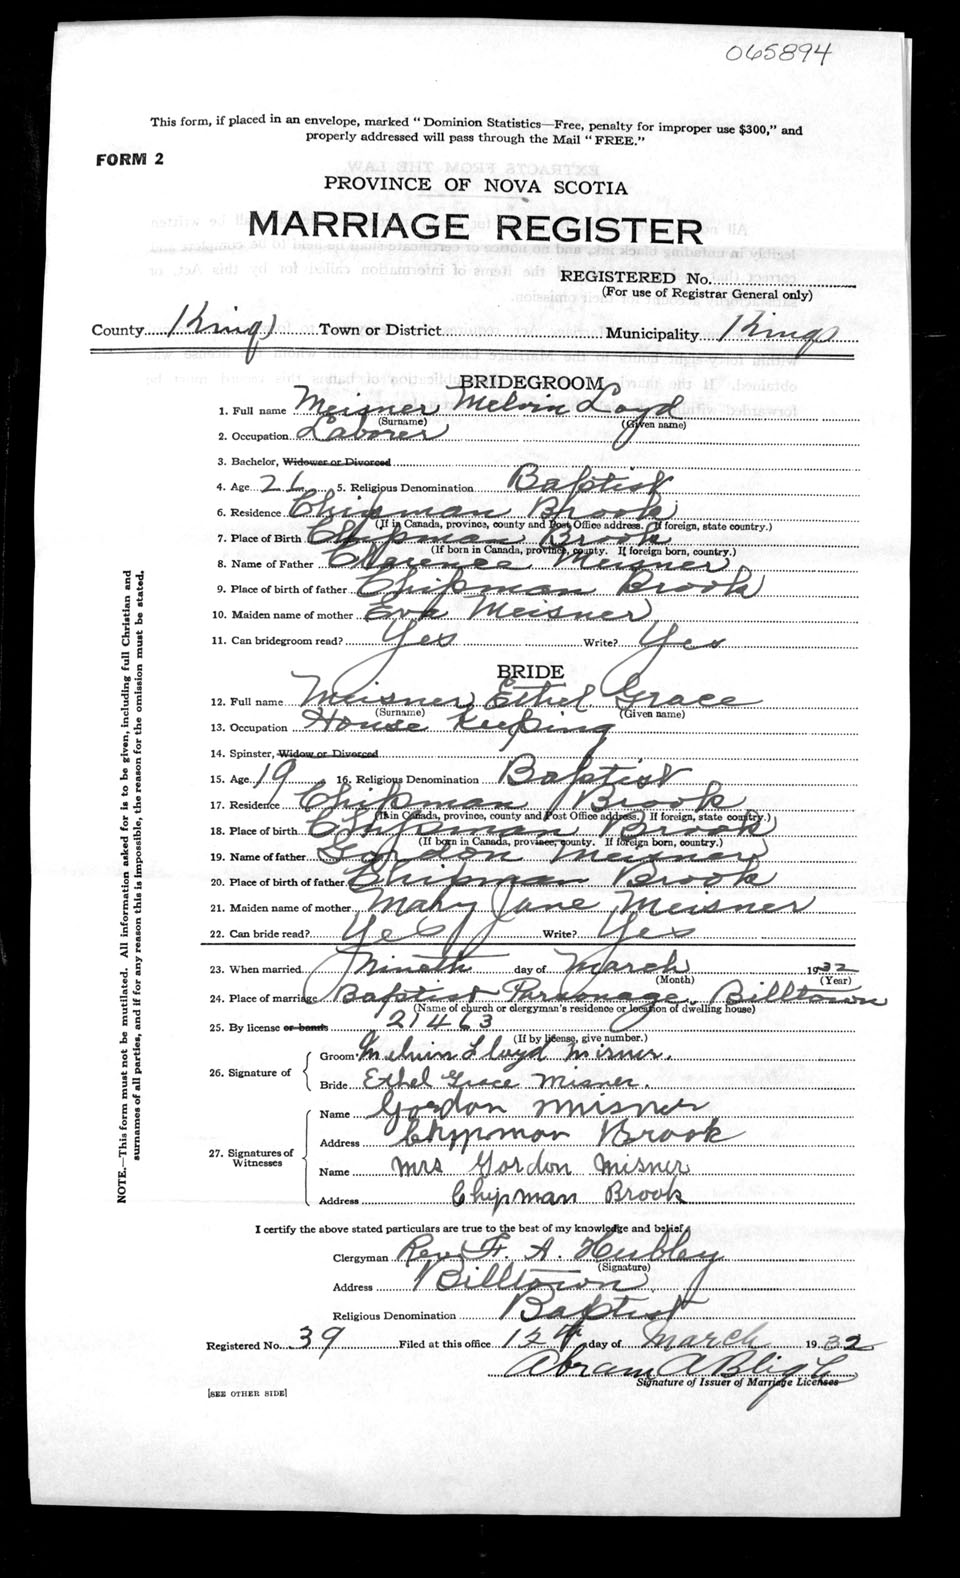 065894
This form, if placed in an envelope, marked "Dominion Statistics—Free, penalty for improper use $300," and
properly addressed will pass through the Mail "FREE."
FORM 2
PROVINCE OF NOVA SCOTIA
MARRIAGE REGISTER
REGISTERED No.
(For use of Registrar General only)
County Kings Town or District Municipality Kings
BRIDEGROOM
1. Full name Meisner Melvin Loyd
(Surname) (Given name)
2. Occupation Laborer
3. Bachelor, Widower or Divorced
4. Age 26 5. Religious Denomination Baptist
6. Residence Chipman Brook
(If in Canada, province, county and Post Office address. If foreign, state country.)
7. Place of Birth Chipman Brook
(If born in Canada, province, county. If foreign born, country.)
8. Name of Father Clarence Meisner
9. Place of birth of father Chipman Brook
10. Maiden name of mother Eva Meisner
11. Can bridegroom read? Yes Write? Yes
BRIDE
12. Full name Meisner Ethel Grace
(Surname) (Given name)
13. Occupation House Keeping
14. Spinster, Widow or Divorced
15. Age 19 16. Religious Denomination Baptist
17. Residence Chipman Brook
(If in Canada, province, county and Post Office address. If foreign, state country.)
18. Place of birth Chipman Brook
(If born in Canada, province, county. If foreign born, country.)
19. Name of father Gordon Meisner
20. Place of birth of father Chipman Brook
21. Maiden name of mother Mary Jane Meisner
22. Can bride read? Yes Write? Yes
23. When married Nineth day of March 1932
(Month) (Year)
24. Place of marriage Baptist Parsonage, Billtown
(Name of church or clergyman's residence or location of dwelling house)
25. By license or banns 21463
(If by license, give number.)
26. Signature of
Groom Melvin Lloyd Misner.
Bride Ethel Grace Misner.
27. Signatures of Witnesses
Name Gordon Misner
Address Chippman Brook
Name Mrs Gordon Misner
Address Chipman Brook
I certify the above stated particulars are true to the best of my knowledge and belief,
Clergyman Rev. F. A. Hubley
(Signature)
Address Billtown
Religious Denomination Baptist
Registered No. 39 Filed at this office 12th day of March 1932
Abram A Bligh
Signature of Issuer of Marriage Licenses
[SEE OTHER SIDE]
NOTE.—This form must not be mutilated. All information asked for is to be given, including full Christian and
surnames of all parties, and if for any reason this is impossible, the reason for the omission must be stated.